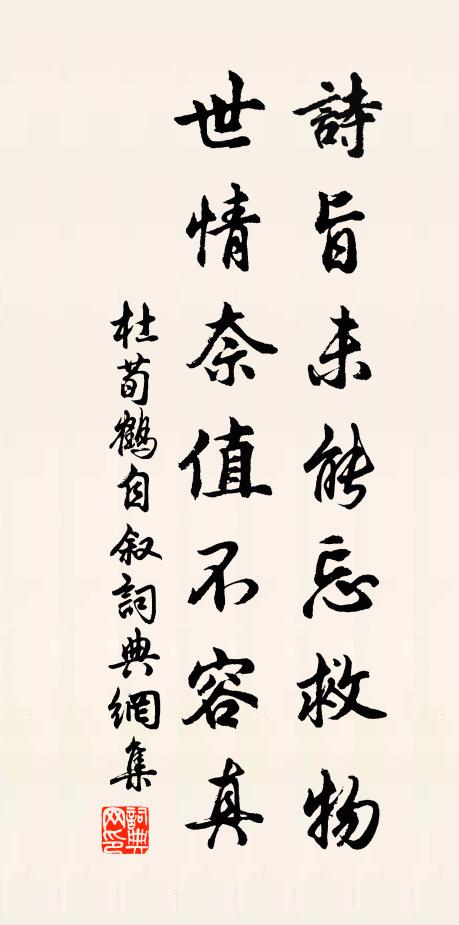 詩旨未能忘救物
世情奈值不容真
杜荀鶴自叙詞典網集
詞典網印